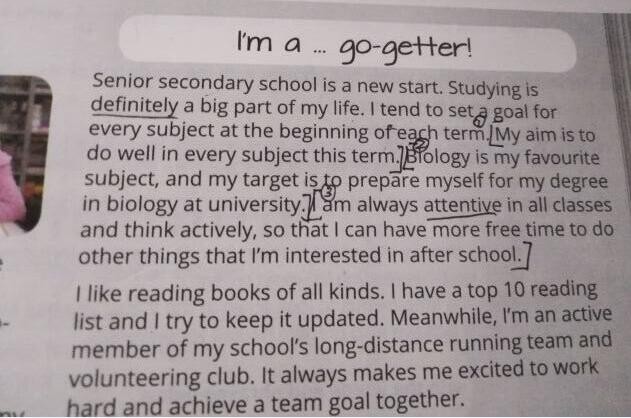 I'm a ... go-getter!
Senior secondary school is a new start. Studying is
definitely a big part of my life. I tend to set a goal for
every subject at the beginning of each term. My aim is to
do well in every subject this term. Biology is my favourite
subject, and my target is to prepare myself for my degree
in biology at university. I am always attentive in all classes
and think actively, so that I can have more free time to do
other things that I'm interested in after school.
I like reading books of all kinds. I have a top 10 reading
list and I try to keep it updated. Meanwhile, I'm an active
member of my school's long-distance running team and
volunteering club. It always makes me excited to work
hard and achieve a team goal together.